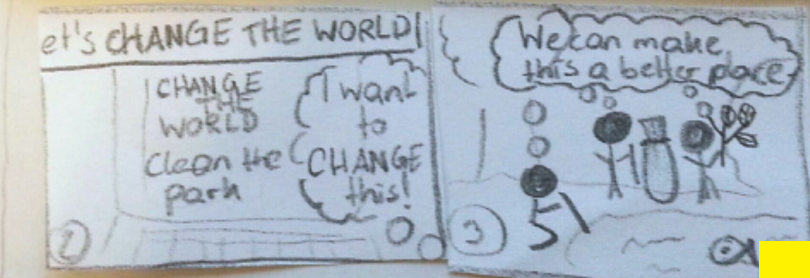 et's CHANGE THE WORLD!
CHANGE
THE
WORLD
Clean the
park
I want
to
CHANGE
this!
We can make
this a better place
3